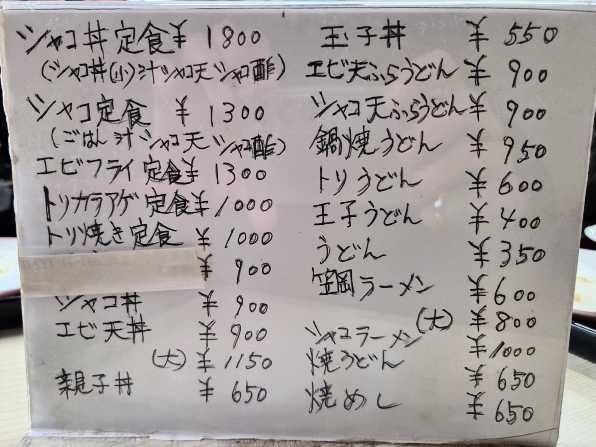 シャコ丼定食 ¥1800
(シャコ丼(小)汁シャコ天シャコ酢)
シャコ定食 ¥1300
(ごはん汁シャコ天シャコ酢)
エビフライ定食¥1300
トリカラアゲ定食¥1000
トリ焼き定食 ¥1000
¥900
シャコ丼 ¥900
エビ天丼 ¥900
(大) ¥1150
親子丼 ¥650
玉子丼 ¥550
エビ天ぷらうどん ¥900
シャコ天ぷらうどん¥900
鍋焼うどん ¥950
トリうどん ¥600
玉子うどん ¥400
うどん ¥350
笠岡ラーメン ¥600
(大) ¥800
シャコラーメン ¥1000
焼うどん ¥650
焼めし ¥650